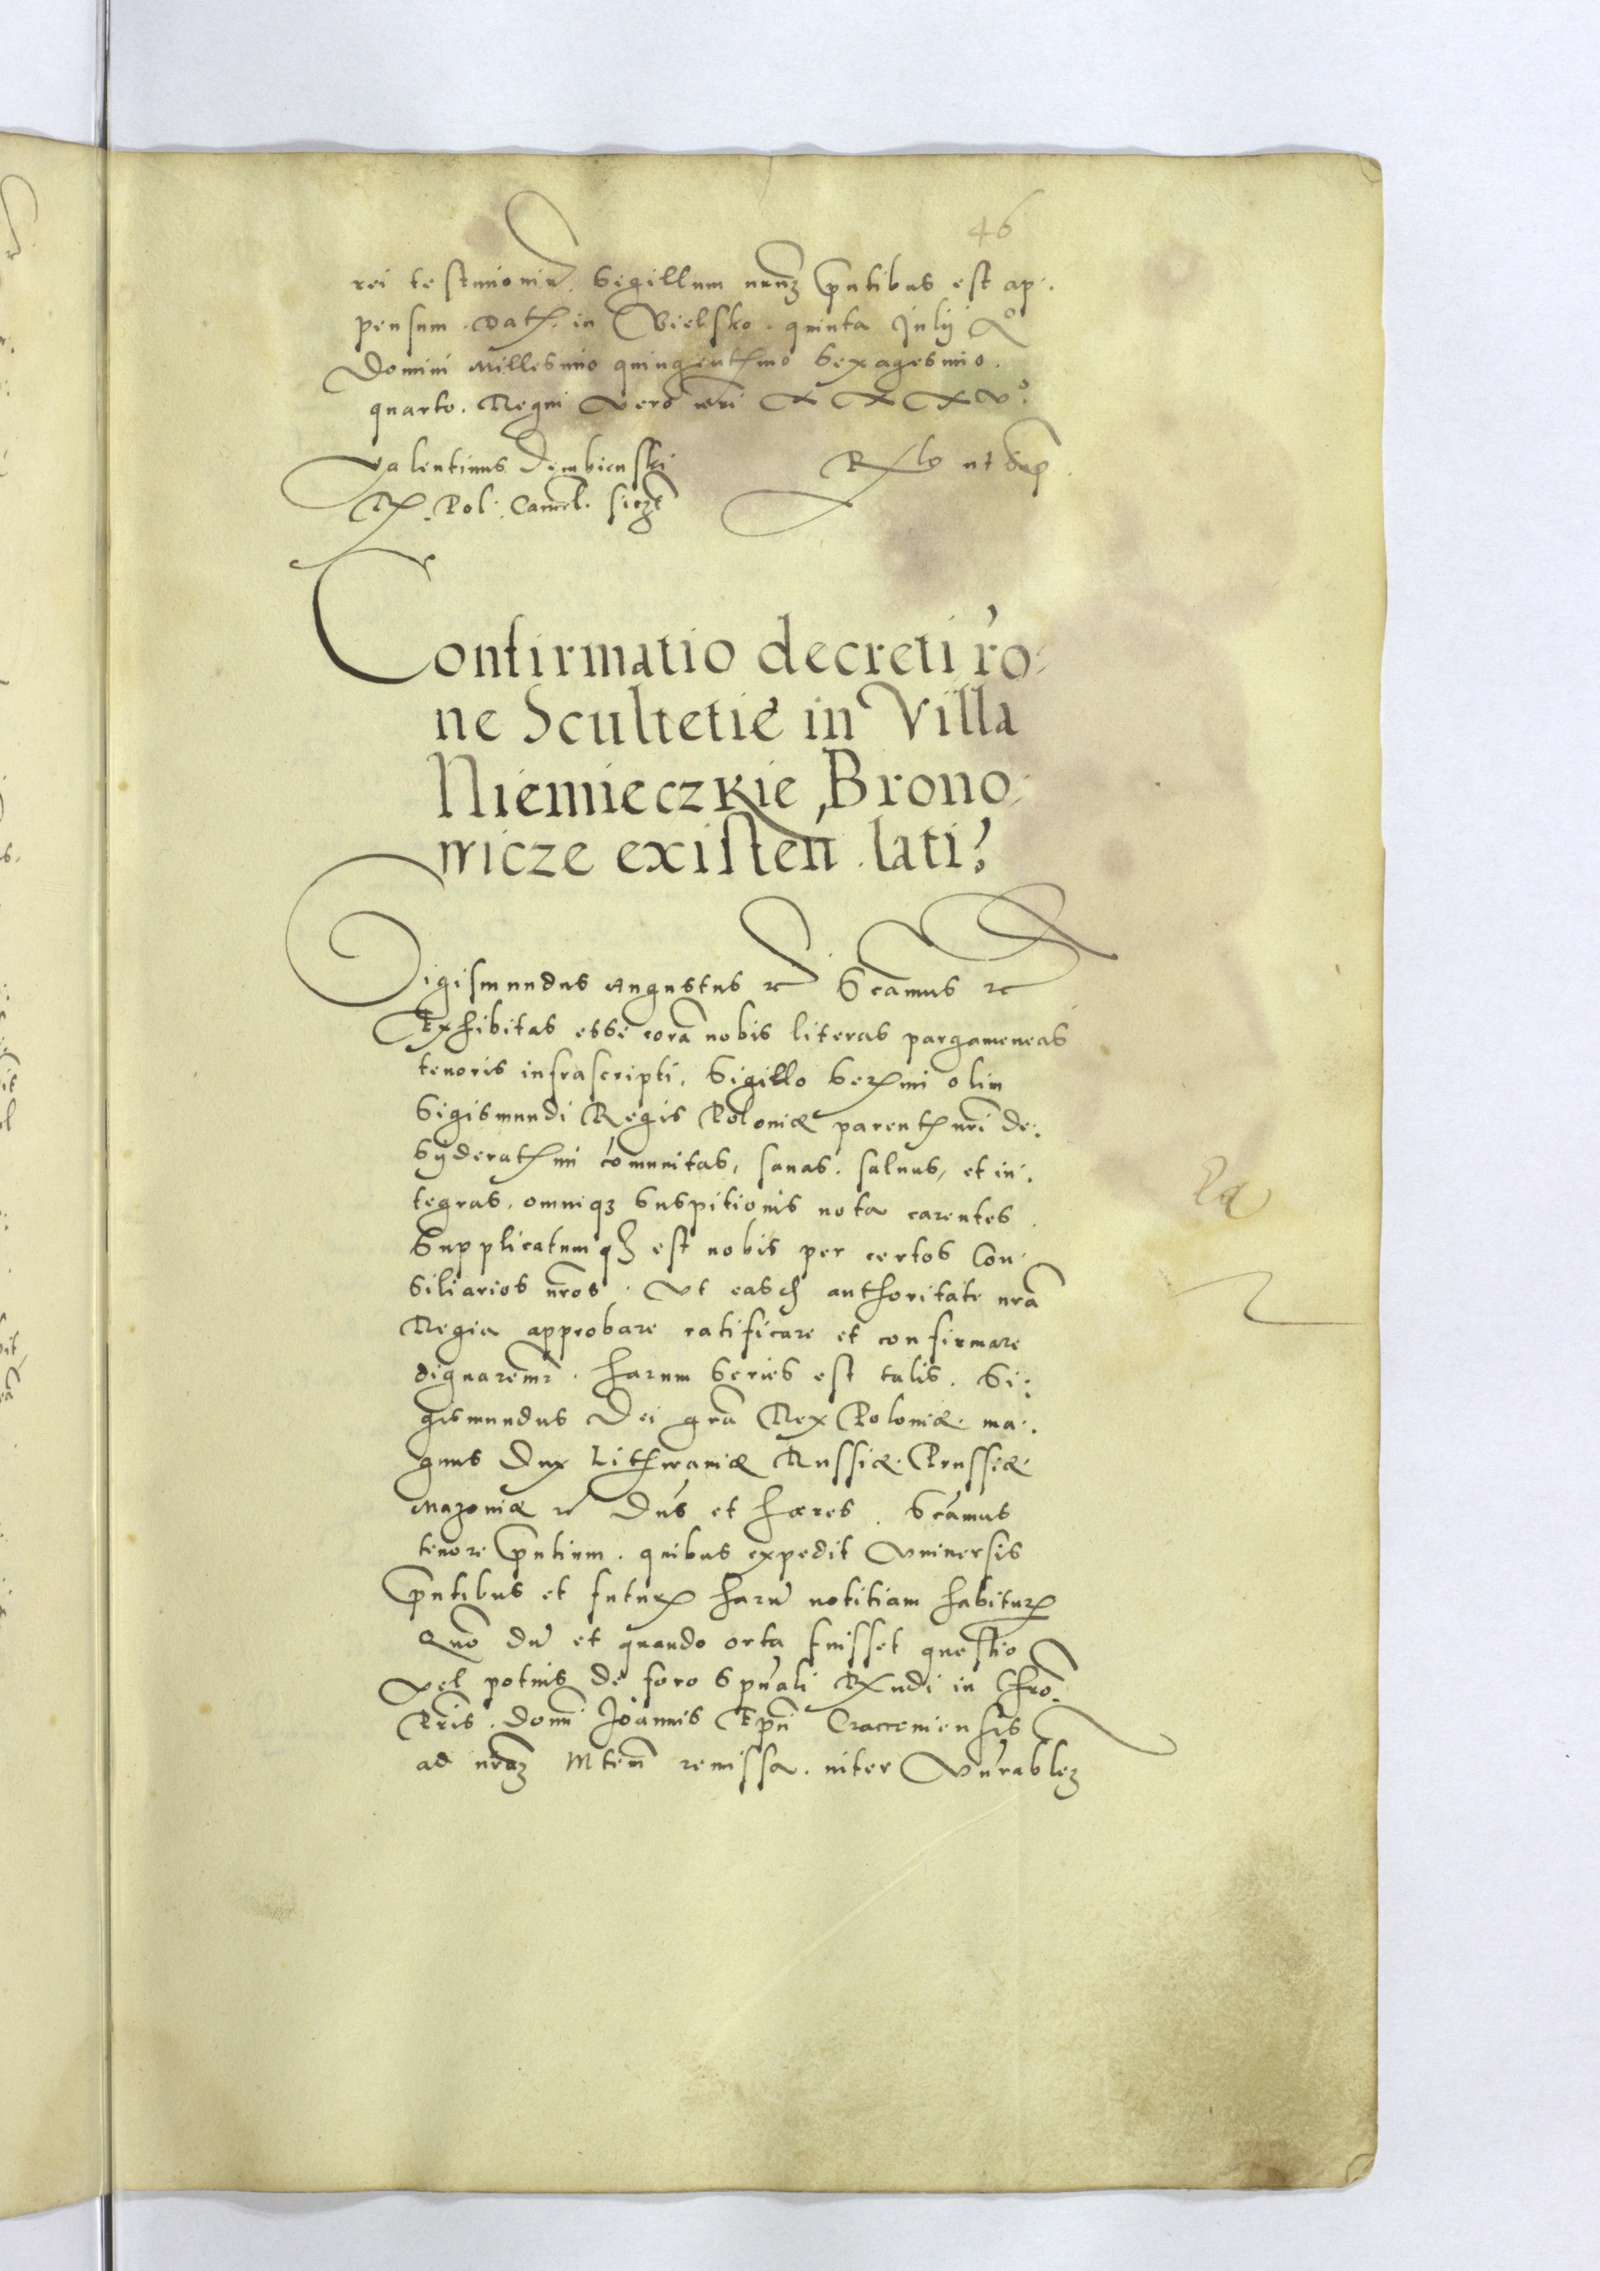 46
rei testimoniũ. Sigillum nrũm pñtibus est ap:
pensum. Dat. in Bielsko. quinta Julÿ Aº
Domini Millesimo quingentmo Sexagesimo.
quarto. Regni vero nri XXXVº.
Valentinus Dembienski
Rlo ut sup.
R. Pol. Cancel. sſt
Confirmatio decreti rõ:
ne Scultetie in Villa
Niemieczkie Brono:
wicze existeñ. lati.
Sigismundus Augustus rc Scamus rc
Exhibitas esse corã nobis literas pargameneas
tenoris infrascripti, Sigillo Sermi olim
Sigismundi Regis Poloniæ parent nri de:
syderatmi cõmunitas, sanas. saluas, et in:
tegras. omniq; suspitionis nota carentes.
Supplicatumq; est nobis per certos Con:
siliarios nros. Ut easd authoritate nrã
Regia approbare ratificare et confirmare
dignaremr. harum series est talis. Si:
gismundus Dei grã Rex Poloniæ. ma:
gnus Dux Lithwaniæ Russiæ. Prussiæ.
Mazoniæ rc Dñs et hæres. Scamus
tenore pñtium. quibus expedit Vniuersis
pñtibus et futur harũ notitiam habitur
Quõ dũ et quando orta fuisset questio
vel potius de foro spũali Rndi in Chro.
Pris. domi Joannis Epi Cracouiensis
ad nraz Mtem remissa. inter Vnrablez
Ra